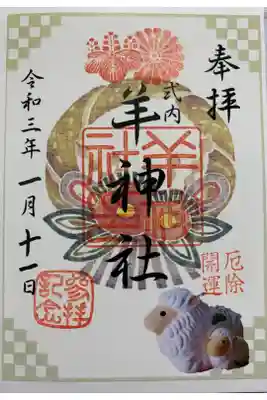 奉拝
式内
羊神社
羊神社
厄除
開運
令和三年一月十一日
参拝
記念